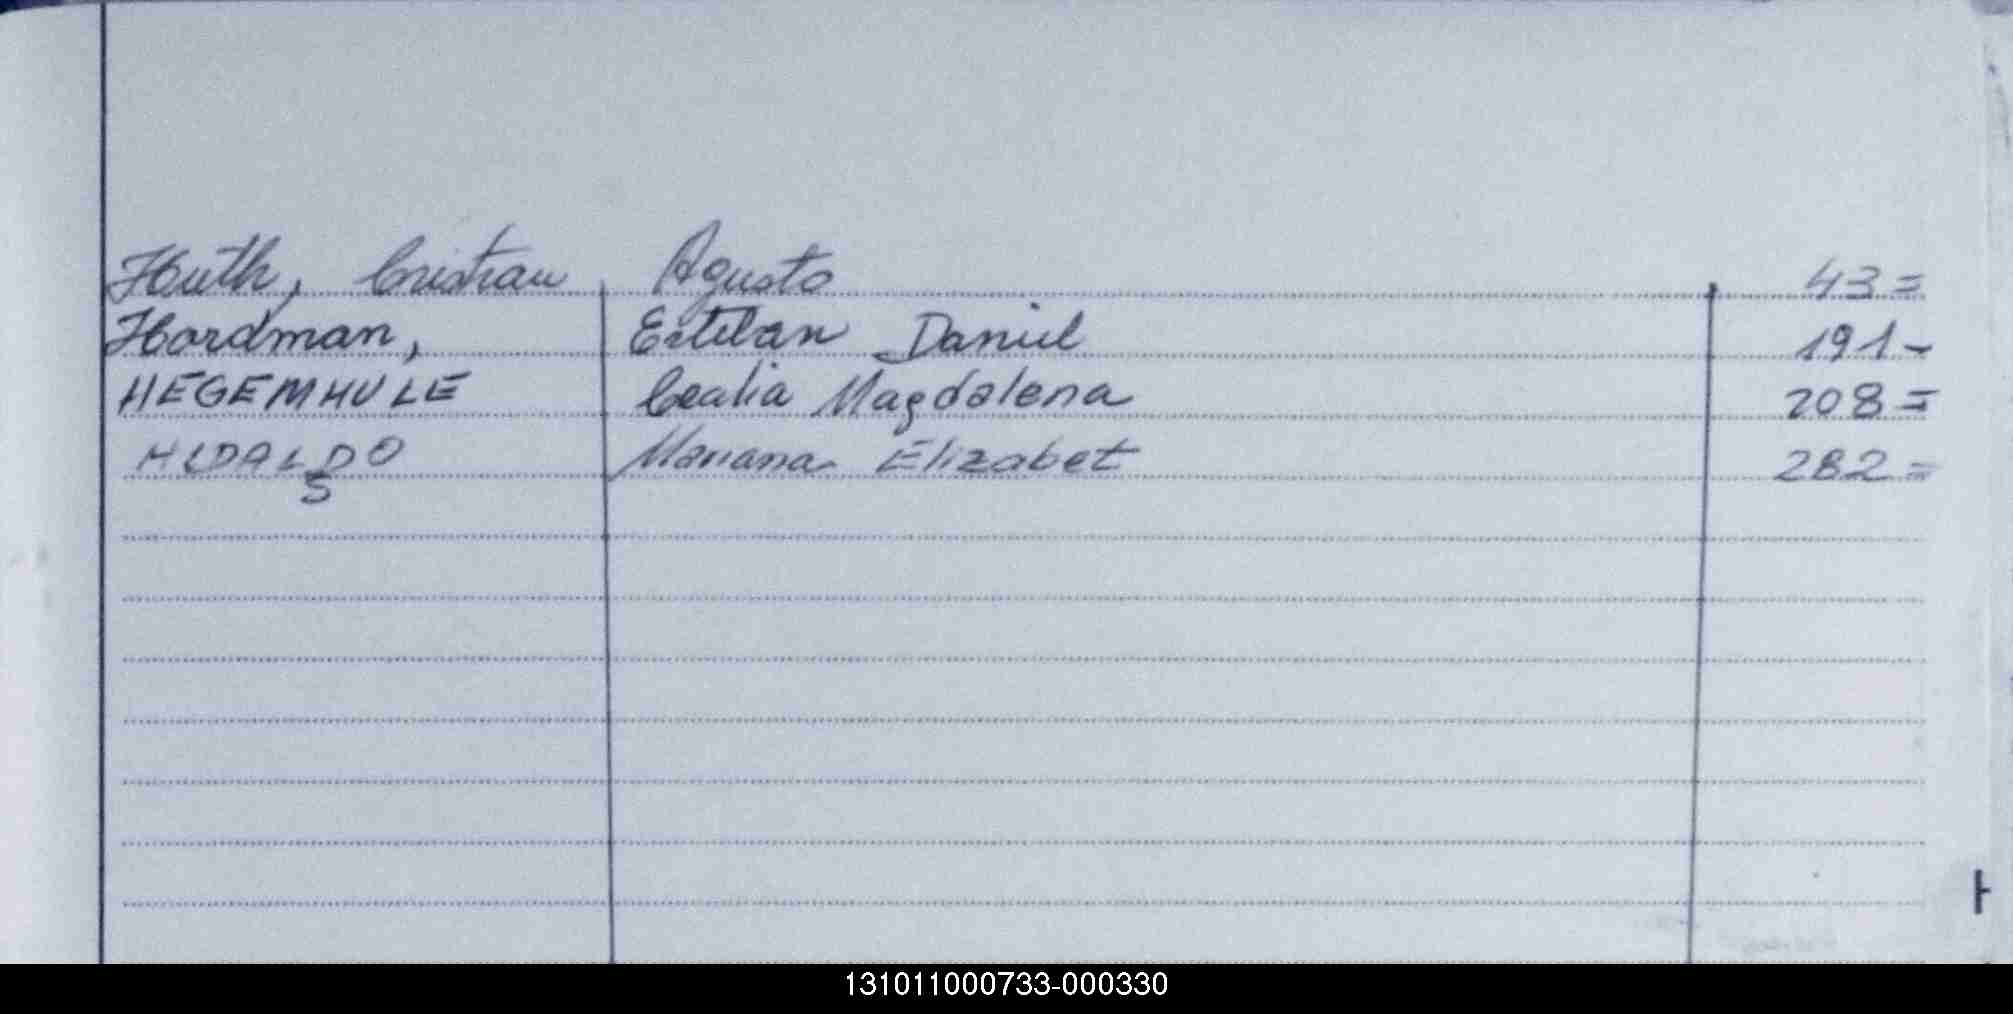 Huth, Cristian Agusto 43=
Hordman, Estelan Daniel 191-
HEGEMHULE Cealia Magdalena 208=
HIDALDO Mariana Elizabet 282=
S
H
131011000733-000330